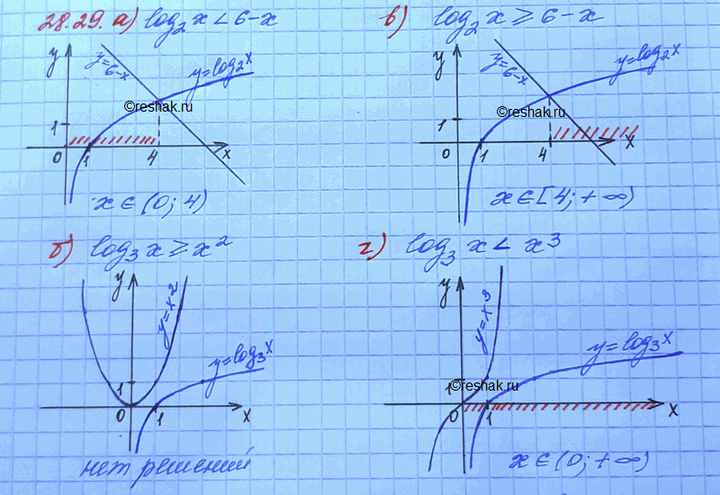 28.29. а) log₂x < 6-x
y
y=6-x
y=log₂x
©reshak.ru
1
0 1 4 x
x ∈ (0; 4)
в) log₂x ≥ 6-x
y
y=6-x
y=log₂x
©reshak.ru
1
0 1 4 x
x ∈ [4; +∞)
б) log₃x ≥ x²
y
y=x²
y=log₃x
1
0 1 x
нет решений
г) log₃x < x³
y
y=x³
y=log₃x
©reshak.ru
1
0 1 x
x ∈ (0; +∞)